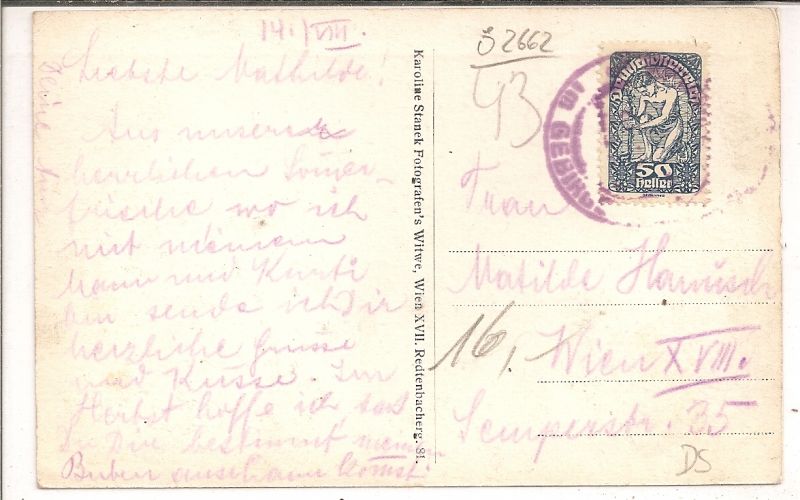 14./VIII.
Liebste Mathilde!
Aus unserer
herrlichen Somer-
frische wo ich
mit meinem
Mann und Kurti
bin sende ich Dir
herzliche Grüsse
und Küsse. Im
Herbst hoffe ich das
Du Dir bestimmt meinen
Buben anschaun komst.
Deine
Karoline Stanek Fotografen's Witwe, Wien XVII. Redtenbacherg. 81.
S 2662
43
IM GEBIRGE
50
Heller
Frau
Matilde Hanusch
16,
Wien XVIII.
Semperstr. 35
DS